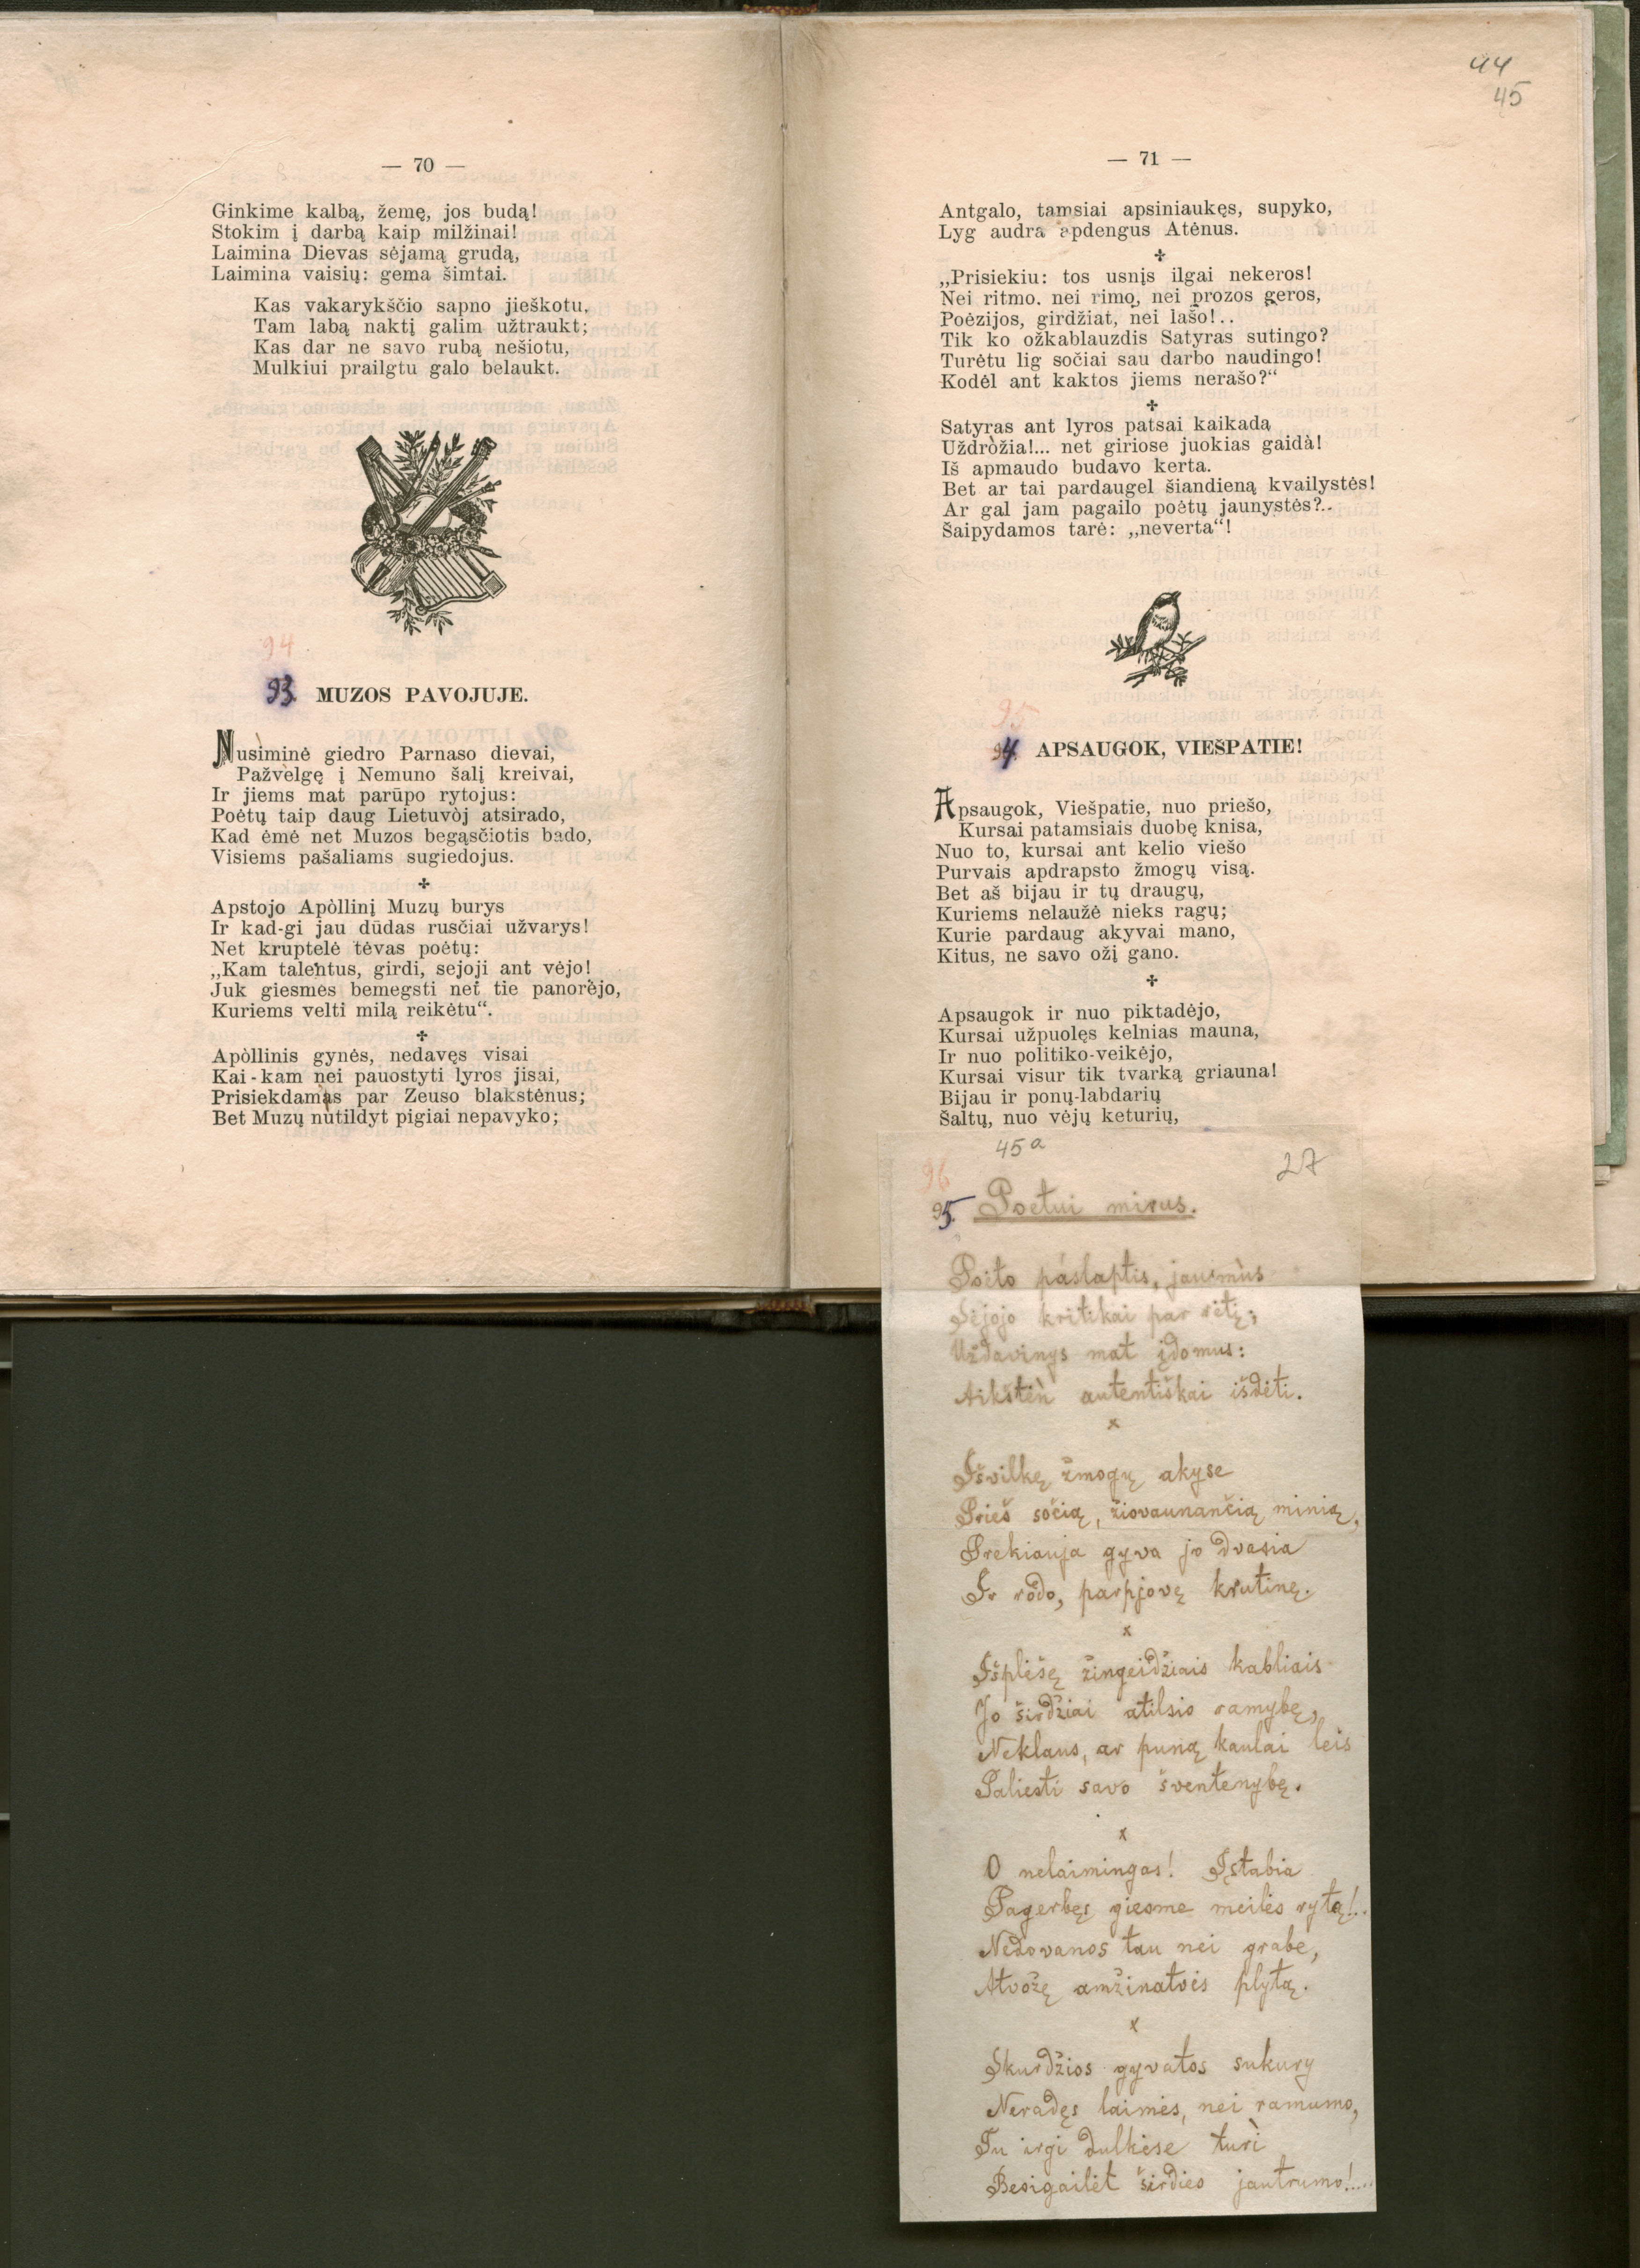 — 70 —
Ginkime kalbą, žemę, jos budą!
Stokim į darbą kaip milžinai!
Laimina Dievas sėjamą grudą,
Laimina vaisių: gema šimtai.
Kas vakarykščio sapno jieškotu,
Tam labą naktį galim užtraukt;
Kas dar ne savo rubą nešiotu,
Mulkiui prailgtu galo belaukt.
94
93. MUZOS PAVOJUJE.
Nusìminė giedro Parnaso dievai,
Pažvelgę į Nemuno šalį kreivai,
Ir jiems mat parūpo rytojus:
Poėtų taip daug Lietuvòj atsirado,
Kad ėmė net Muzos begąsčiotis bado,
Visiems pašaliams sugiedojus.
Apstojo Apòllinį Muzų burys
Ir kad-gi jau dūdas rusčiai užvarys!
Net kruptelė tėvas poėtų:
„Kam talentus, girdi, sejoji ant vėjo!
Juk giesmes bemegsti net tie panorėjo,
Kuriems velti milą reikėtu“.
Apòllinis gynės, nedavęs visai
Kai-kam nei pauostyti lyros jisai,
Prisiekdamas par Zeuso blakstėnus;
Bet Muzų nutildyt pigiai nepavyko;
44
45
— 71 —
Antgalo, tamsiai apsiniaukęs, supyko,
Lyg audra apdengus Atėnus.
„Prisiekiu: tos usnįs ilgai nekeros!
Nei ritmo, nei rimo, nei prozos geros,
Poėzijos, girdžiat, nei lašo!..
Tik ko ožkablauzdis Satyras sutingo?
Turėtu lig sočiai sau darbo naudingo!
Kodėl ant kaktos jiems nerašo?“
Satyras ant lyros patsai kaikadą
Uždròžia!... net giriose juokias gaidà!
Iš apmaudo budavo kerta.
Bet ar tai pardaugel šiandieną kvailystės!
Ar gal jam pagailo poėtų jaunystės?..
Šaipydamos tarė: „neverta“!
95
94. APSAUGOK, VIEŠPATIE!
Apsaugok, Viešpatie, nuo priešo,
Kursai patamsiais duobę knisa,
Nuo to, kursai ant kelio viešo
Purvais apdrapsto žmogų visą.
Bet aš bijau ir tų draugų,
Kuriems nelaužė nieks ragų;
Kurie pardaug akyvai mano,
Kitus, ne savo ožį gano.
Apsaugok ir nuo piktadėjo,
Kursai užpuolęs kelnias mauna,
Ir nuo politiko-veikėjo,
Kursai visur tik tvarką griauna!
Bijau ir ponų-labdarių
Šaltų, nuo vėjų keturių,
45 a
27
96
95. Poetui mirus.
Poeto paslaptis, jausmùs
Sėjojo kritikai par sėtį;
Uždavinys mat įdomus:
Aikštėn autentiškai išdėti.
x
Išvilkę žmogų akyse
Prieš sočią, žiovaunančią minią,
Prekiauja gyva jo dvasia
Ir rodo, parpjovę krutinę.
x
Išplėšę žingeidžiais kabliais
Jo širdžiai atilsio ramybę,
Neklaus, ar puną kaulai leis
Paliesti savo šventenybę.
x
O nelaimingas! Įstabia
Pagerbęs giesme meilės rytą!..
Nedovanos tau nei grabe,
Atvožę amžinatvės plytą.
x
Skurdžios gyvatos sukury
Neradęs laimės, nei ramumo,
Tu irgi dulkėse turì
Besigailėt širdies jautrumo!....